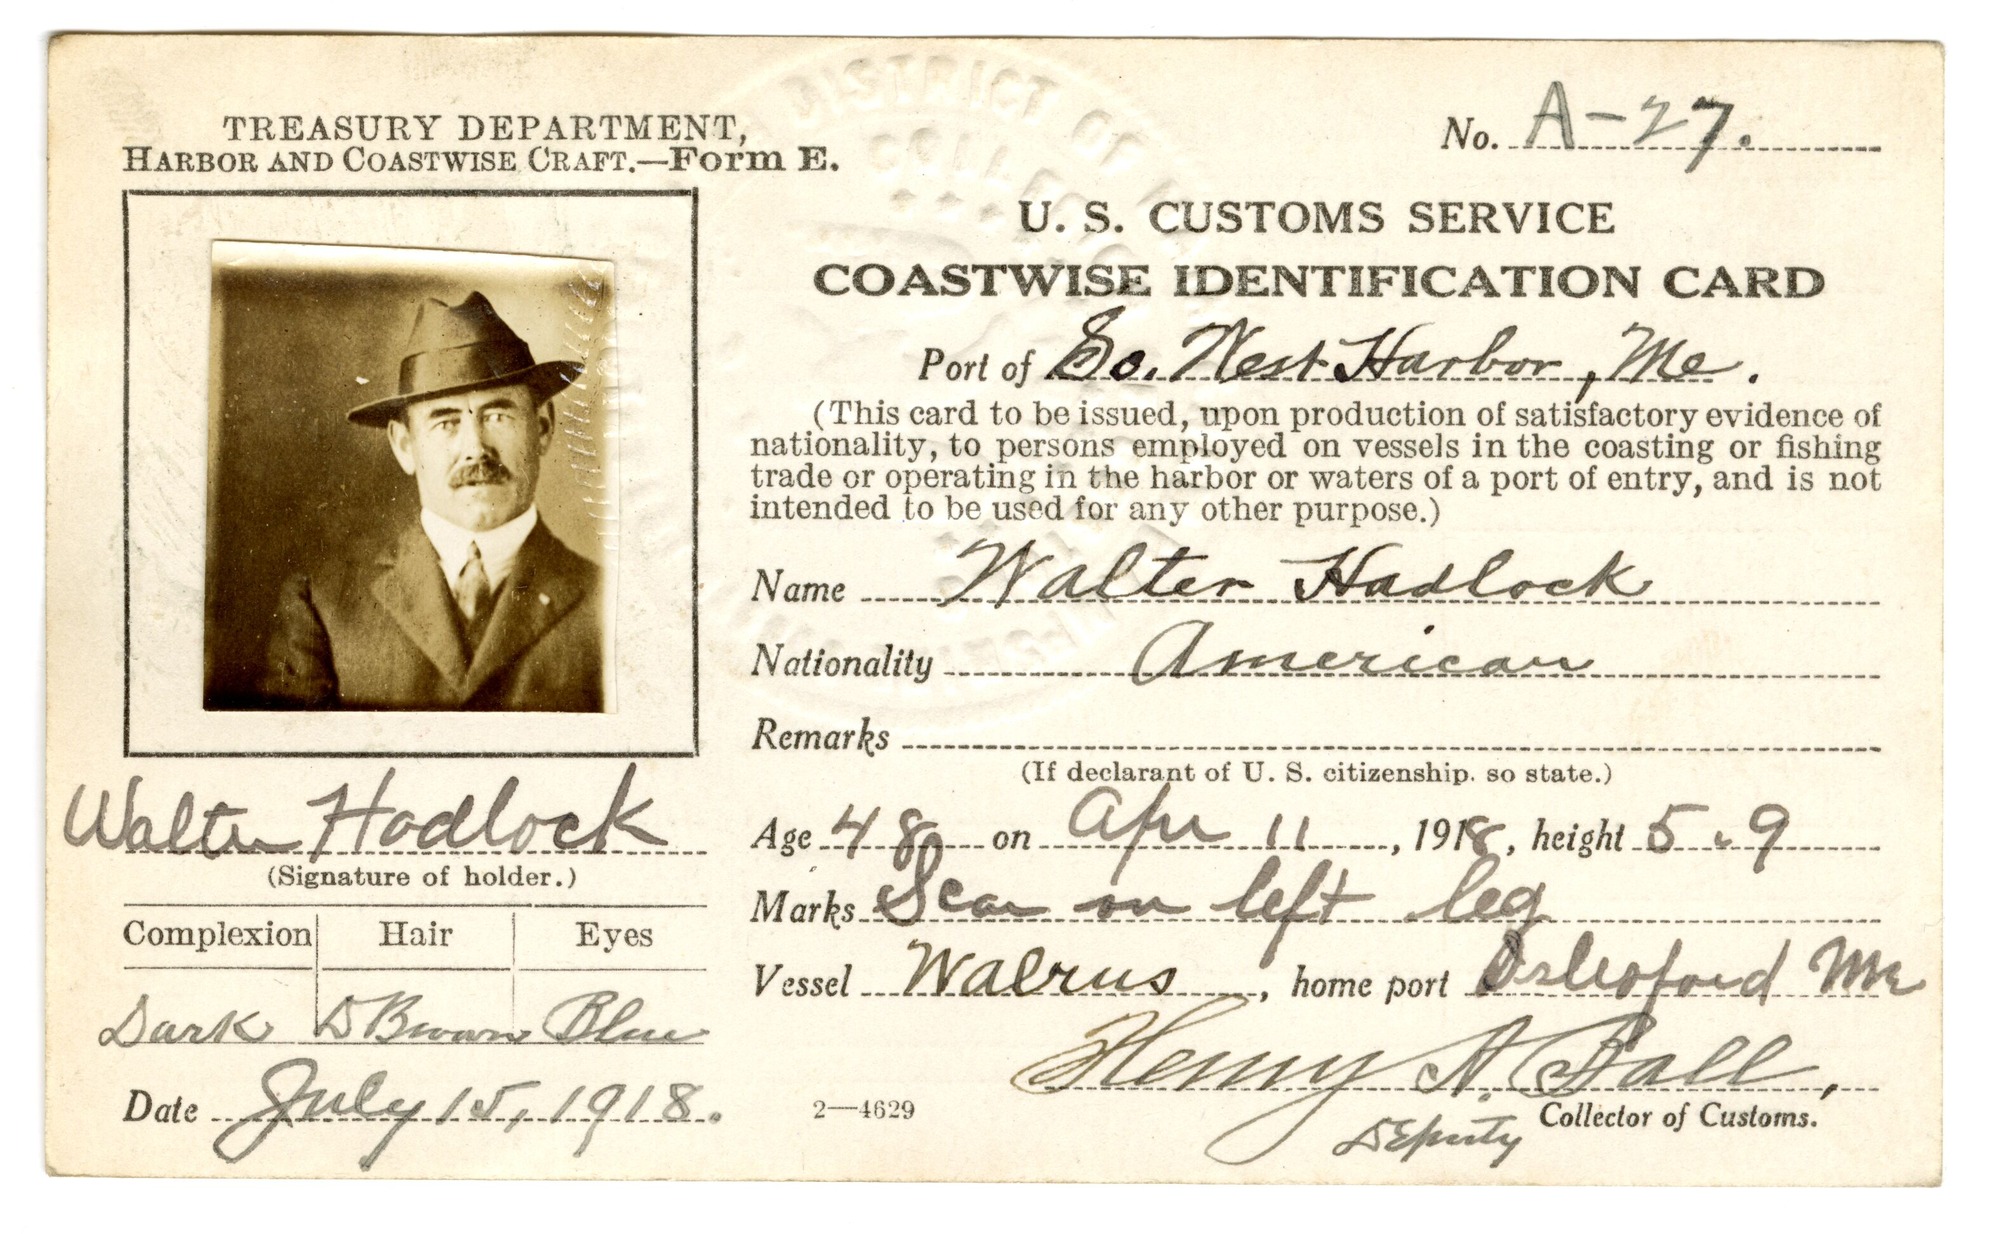 TREASURY DEPARTMENT,
HARBOR AND COASTWISE CRAFT.—Form E.
No. A-27.
DISTRICT OF
U. S. CUSTOMS SERVICE
COASTWISE IDENTIFICATION CARD
Port of So. West Harbor, Me.
(This card to be issued, upon production of satisfactory evidence of
nationality, to persons employed on vessels in the coasting or fishing
trade or operating in the harbor or waters of a port of entry, and is not
intended to be used for any other purpose.)
Name Walter Hadlock
Nationality American
Remarks
(If declarant of U. S. citizenship. so state.)
Age 48 on Apr 11, 1918, height 5.9
Marks Scar on left leg
Vessel Walrus, home port Islesford Me
Henry A. Ball,
Deputy Collector of Customs.
2—4629
Walter Hadlock
(Signature of holder.)
Complexion Hair Eyes
Dark D Brown Blue
Date July 15, 1918.